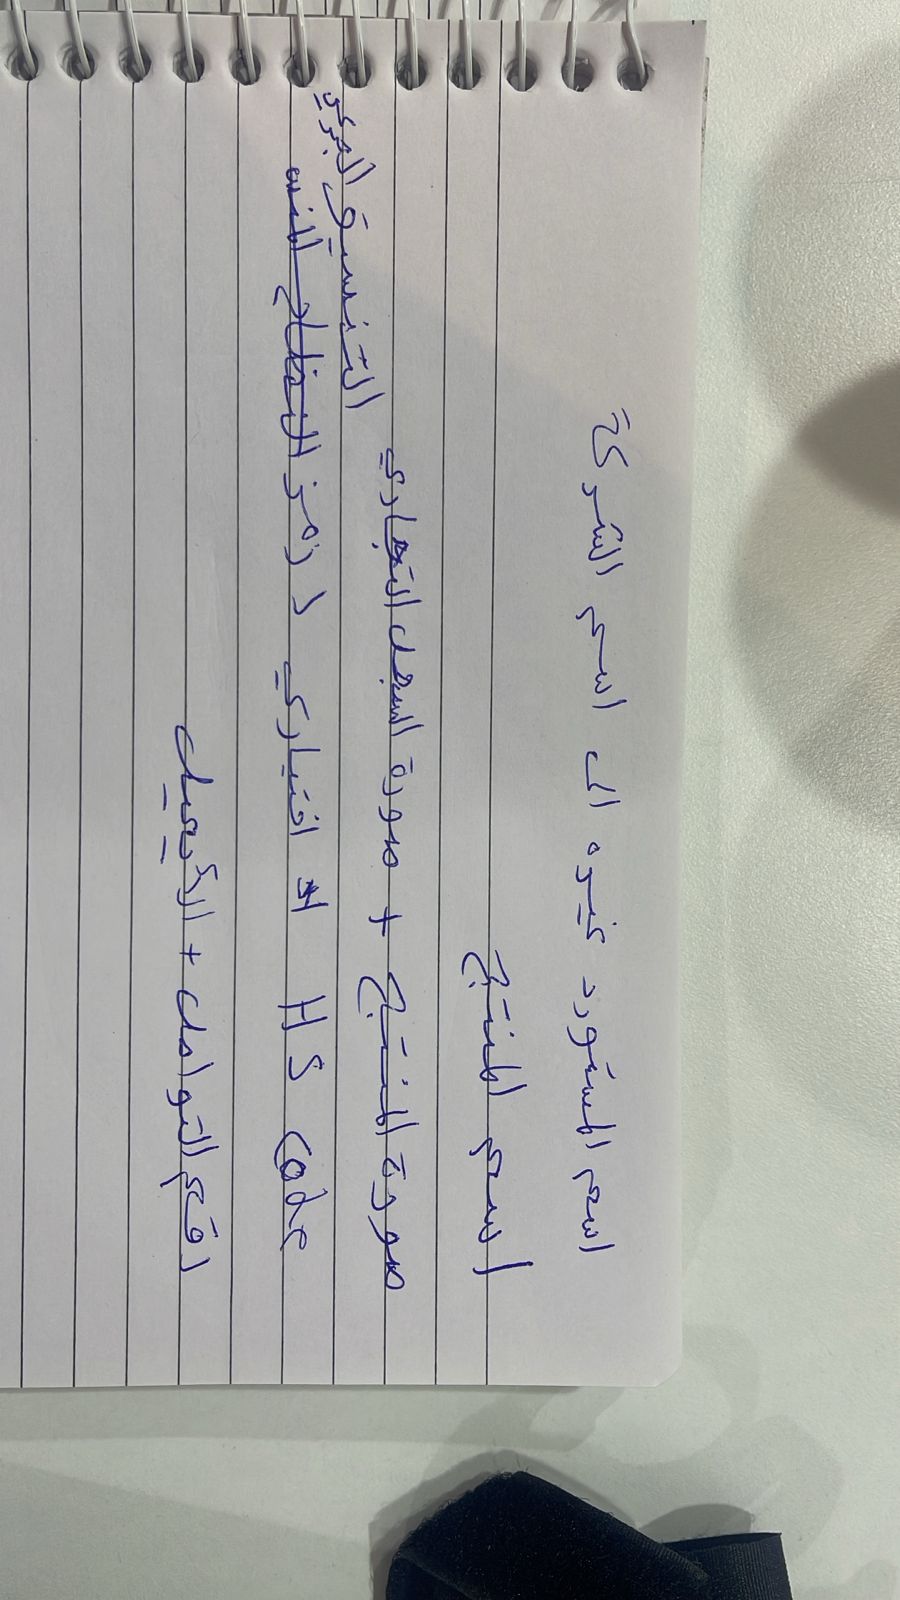 اسم المستورد غيره الى اسم الشركة
اسم المنتج
صورة المنتج + صورة السجل التجاري
HS code اختياري لا رمز التنسيق
رقم التواصل + الأيميل